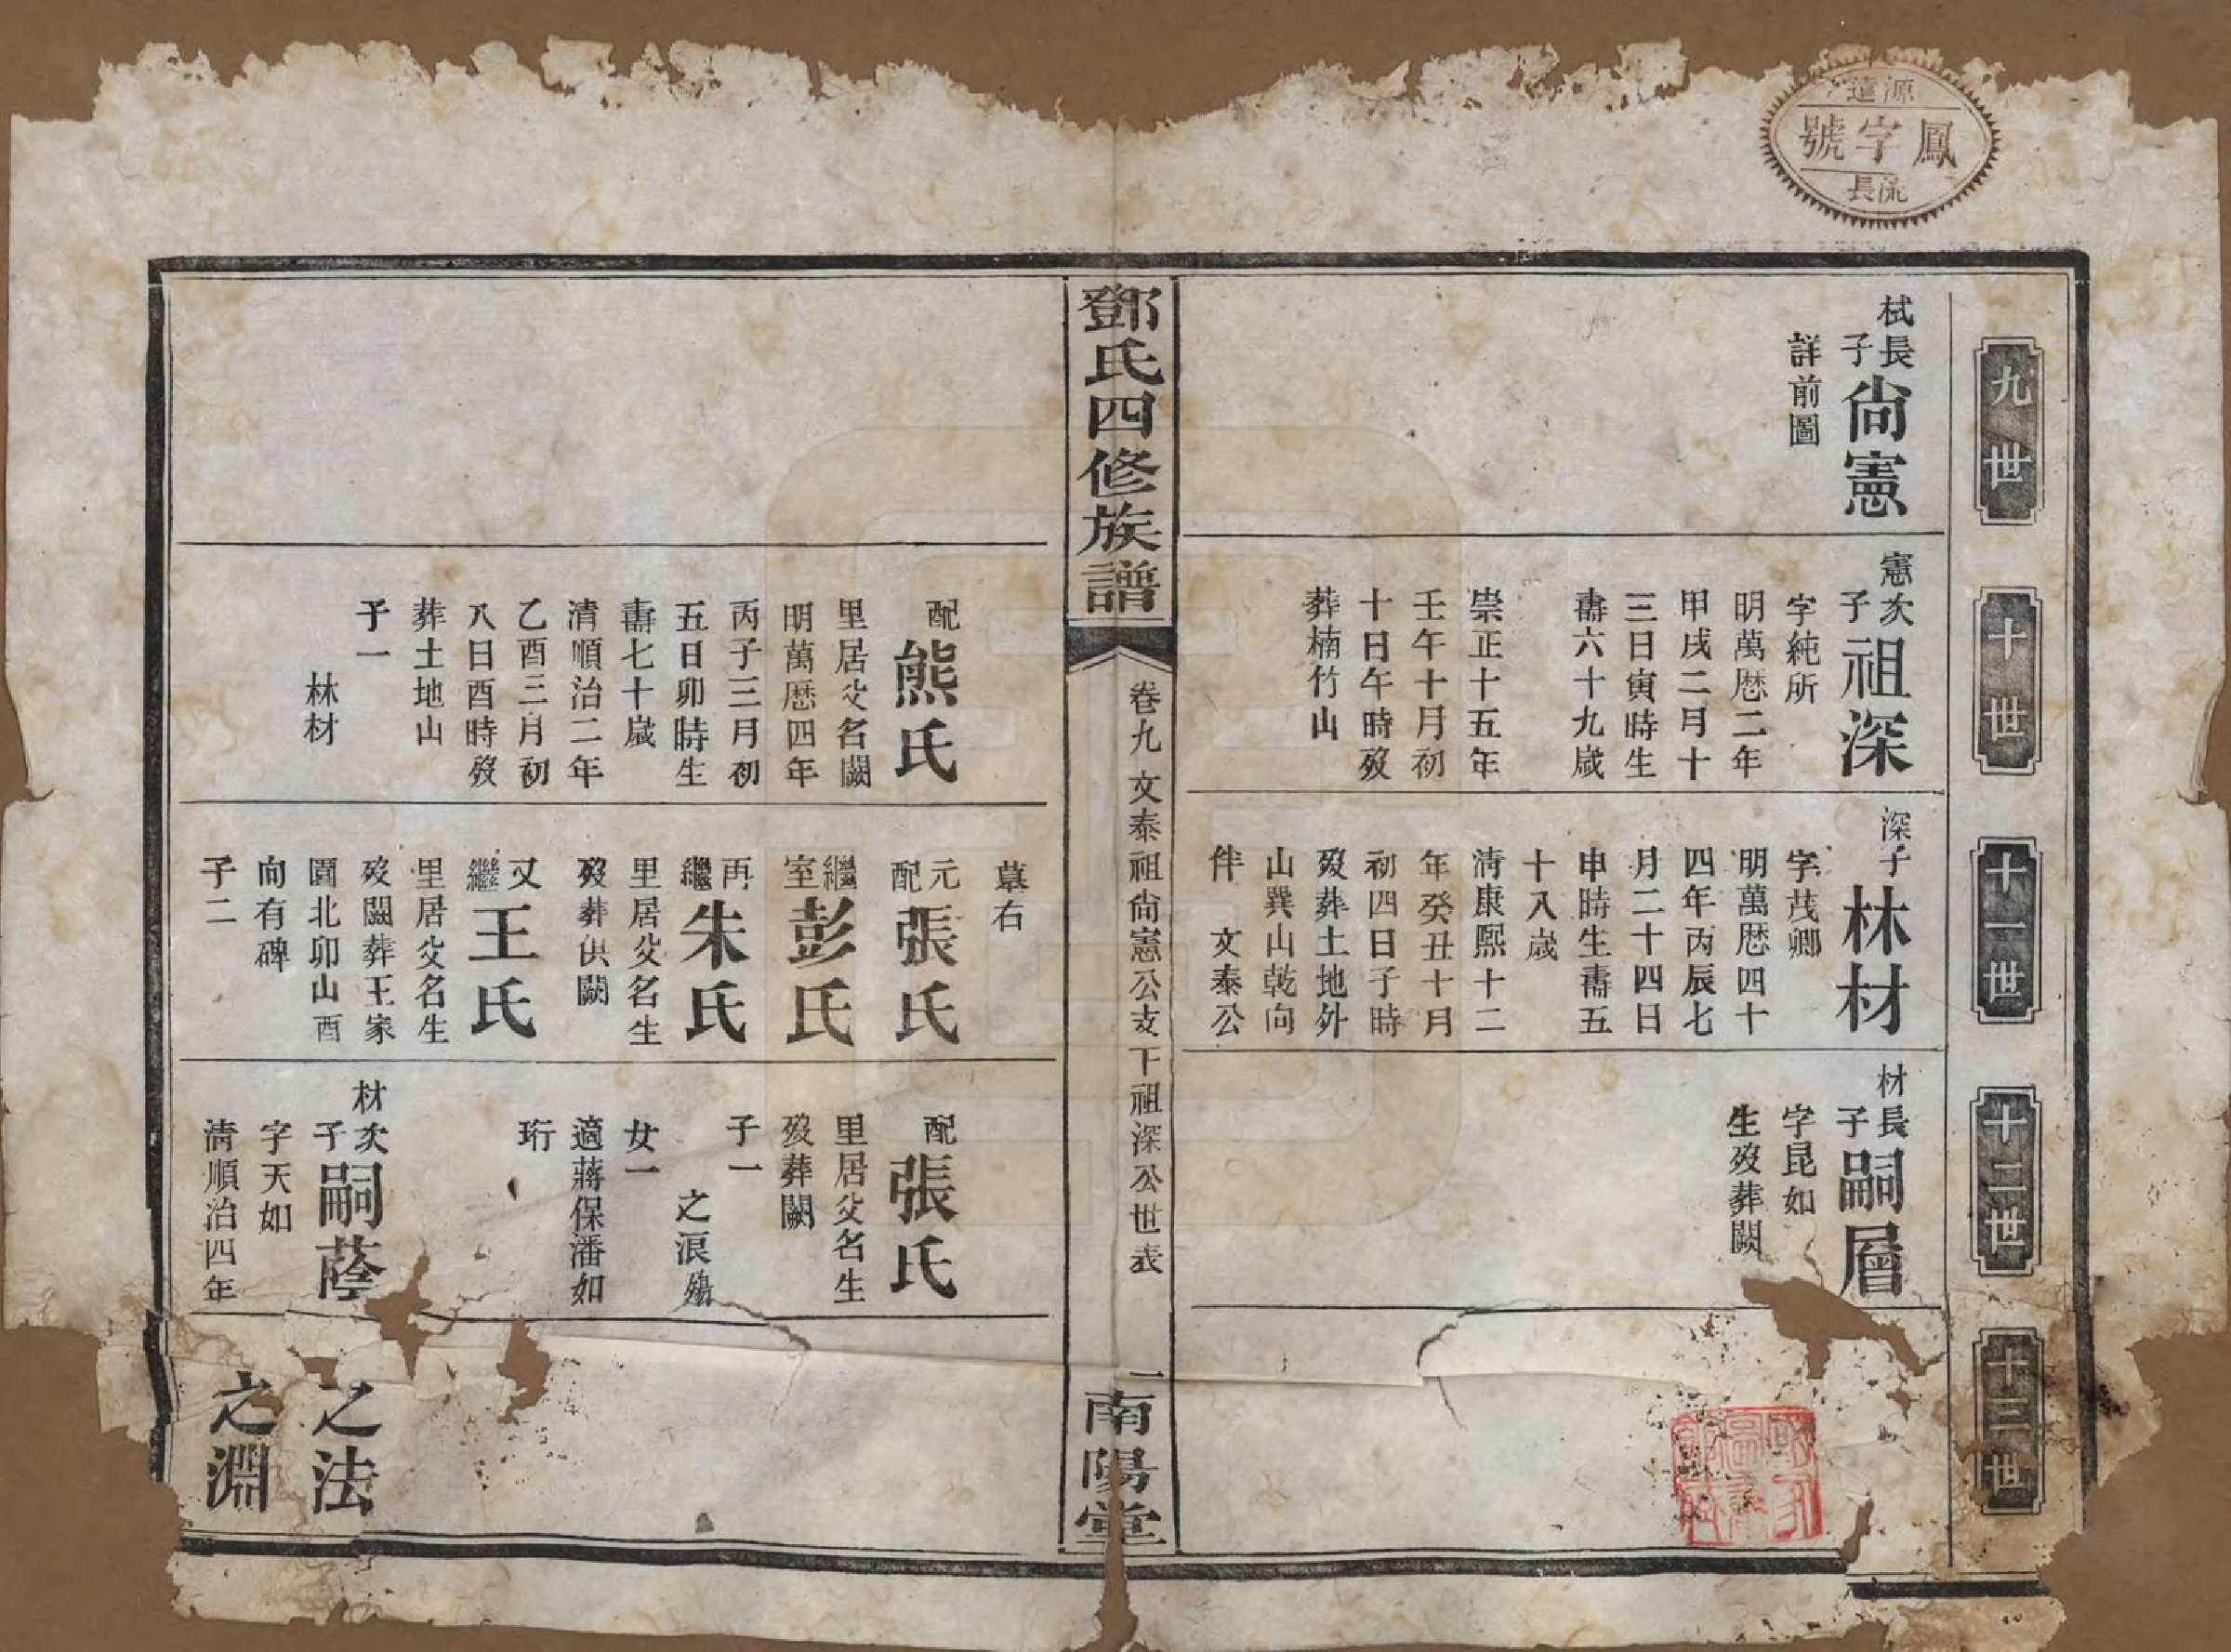 源遠
鳳字號
流長
九世
十世
十一世
十二世
十三世
栻長子尙憲
詳前圖
憲次子祖深
字純所
明萬歴二年
甲戌二月十
三日寅時生
壽六十九歲
崇正十五年
壬午十月初
十日午時歿
葬楠竹山
深子林材
字茂卿
明萬歴四十
四年丙辰七
月二十四日
申時生壽五
十八歲
清康熙十二
年癸丑十月
初四日子時
歿葬土地外
山巽山乾向
伴 文泰公
材長子嗣層
字昆如
生歿葬闕
鄧氏四修族譜
卷九 文泰祖尙憲公支下祖深公世表
一
南陽堂
配熊氏
里居父名闕
明萬歴四年
丙子三月初
五日卯時生
壽七十歲
清順治二年
乙酉三月初
八日酉時歿
葬土地山
子一
林材
墓右
元配張氏
繼室彭氏
再繼朱氏
里居父名生
歿葬俱闕
又繼王氏
里居父名生
歿闕葬王家
園北卯山酉
向有碑
子二
配張氏
里居父名生
歿葬闕
子一
之浪殤
女一
適蔣保潘如
珩
材次子嗣蔭
字天如
清順治四年
之法
之淵